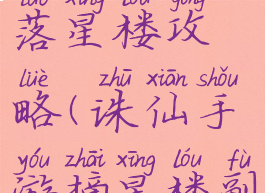 luò xīng lóu gōng
落星楼攻
lüè zhū xiān shǒu
略(诛仙手
yóu zhāi xīng lóu fù
游摘星楼副